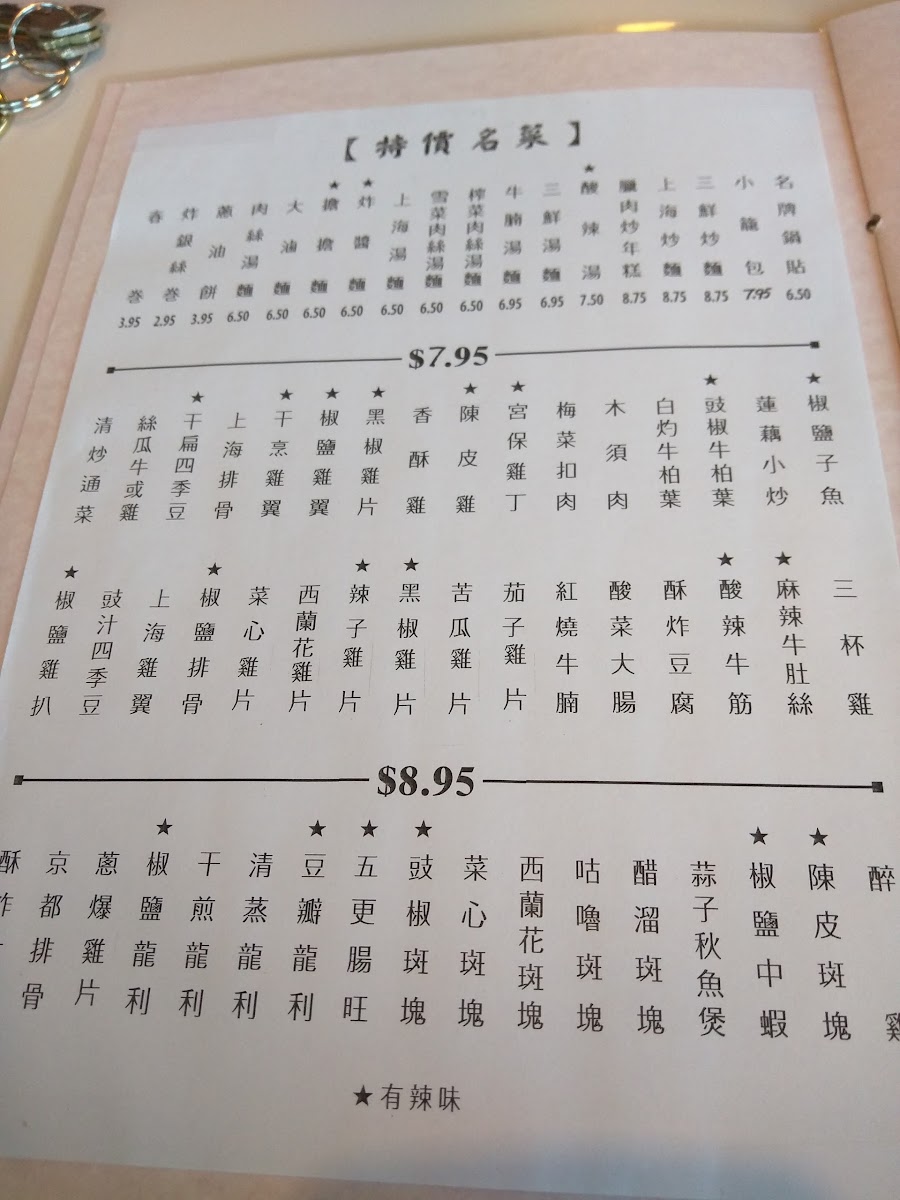 【特價名菜】
名牌鍋貼 6.50
小籠包 7.95
三鮮炒麵 8.75
上海炒麵 8.75
臘肉炒年糕 8.75
★酸辣湯 7.50
三鮮湯麵 6.95
牛腩湯麵 6.95
榨菜肉絲湯麵 6.50
雪菜肉絲湯麵 6.50
上海湯麵 6.50
★炸醬麵 6.50
★擔擔麵 6.50
大滷麵 6.50
肉絲湯麵 6.50
蔥油餅 3.95
炸銀絲卷 2.95
春卷 3.95
$7.95
★椒鹽子魚
蓮藕小炒
★豉椒牛柏葉
白灼牛柏葉
木須肉
梅菜扣肉
★宮保雞丁
★陳皮雞
香酥雞
★黑椒雞片
★椒鹽雞翼
★干烹雞翼
上海排骨
★干扁四季豆
絲瓜牛或雞
清炒通菜
三杯雞
★麻辣牛肚絲
★酸辣牛筋
酥炸豆腐
酸菜大腸
紅燒牛腩
茄子雞片
苦瓜雞片
★黑椒雞片
★辣子雞片
西蘭花雞片
菜心雞片
★椒鹽排骨
上海雞翼
豉汁四季豆
★椒鹽雞扒
$8.95
醉雞
★陳皮斑塊
★椒鹽中蝦
蒜子秋魚煲
醋溜斑塊
咕嚕斑塊
西蘭花斑塊
菜心斑塊
★豉椒斑塊
★五更腸旺
★豆瓣龍利
清蒸龍利
干煎龍利
★椒鹽龍利
蔥爆雞片
京都排骨
酥炸
★有辣味